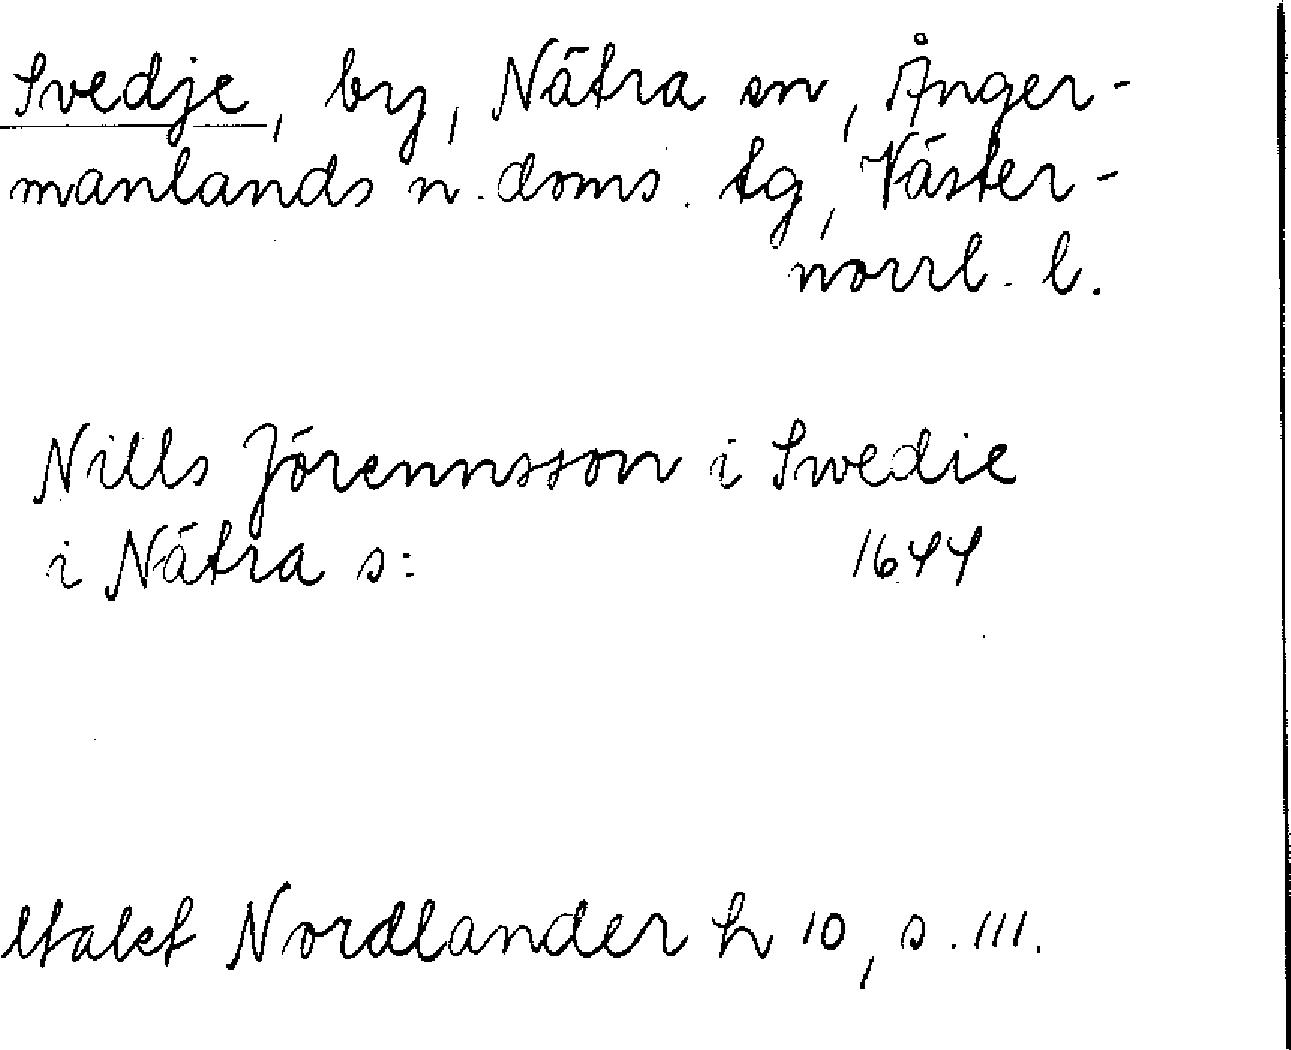 Svedje, by, Nätra sn, Ånger-
manlands n. doms. tg, Väster-
norrl. l.
Nills Jörennsson i Swedie
i Nätra s: 1644
Nordlander h 10, s. 111.